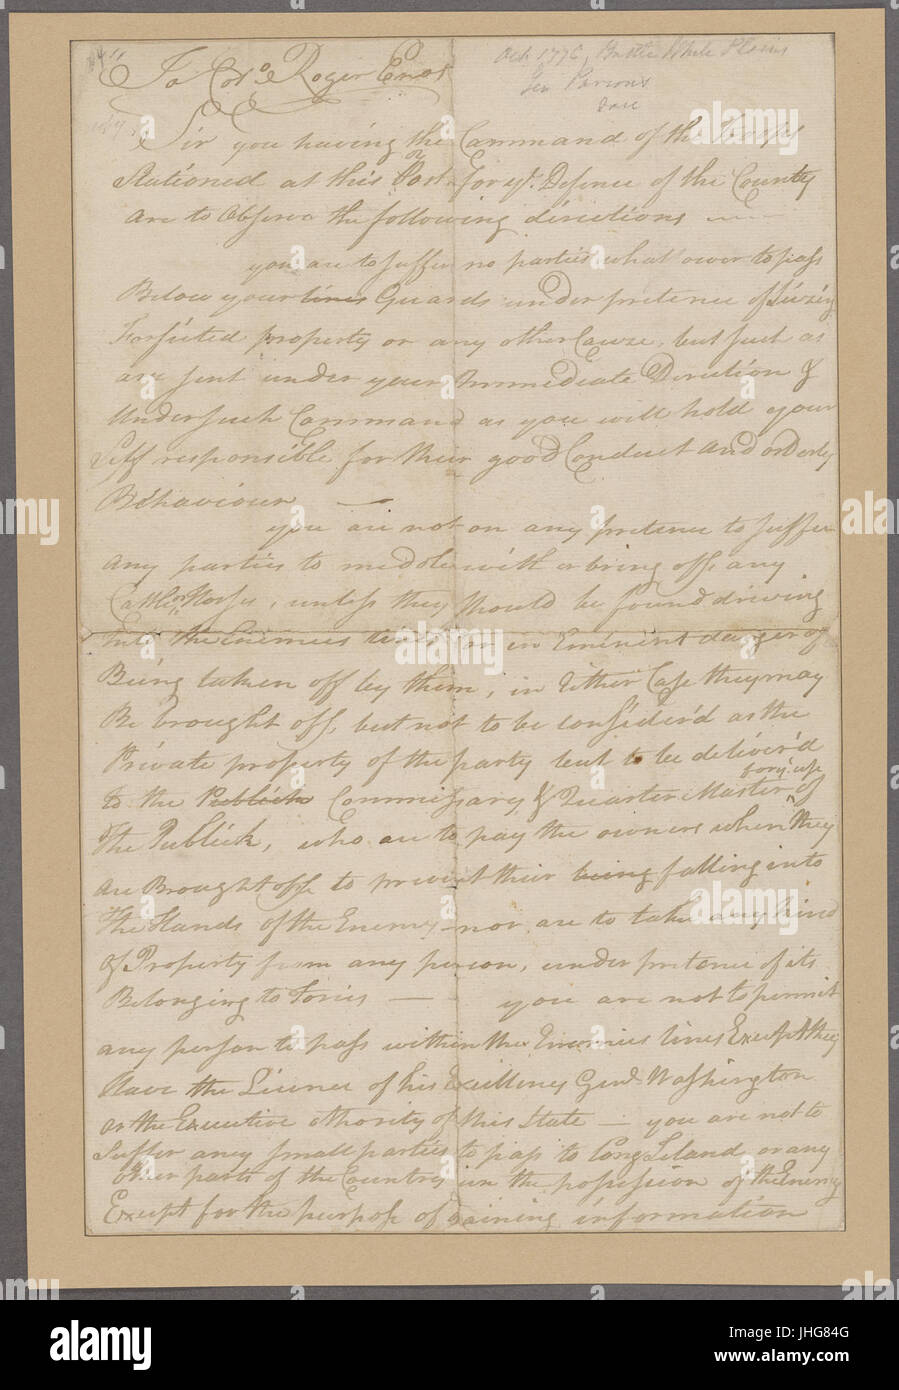 To Colo. Roger Enos
Oct 1776, Battle White Plains
Gen Parsons
Sir you having the Command of the Troops
Stationed at this Post or For ye. Defence of the County
are to Observe the following directions
you are to suffer no parties what ever to pass
Below your lines Guards under pretence of Siezing
Forfited property or any other Cause, but such as
are sent under your Immediate Direction &
Under such Command as you will hold your
Self responsible for their good Conduct and orderly
Behaviour
you are not on any pretence to suffer
any parties to meddle with or bring off any
Cattle or Horses, unless they should be found driving
Into the Enemies lines or in Eminent danger of
Being taken off by them, in Either Case they may
Be brought off, but not to be consider'd as the
Private property of the party but to be deliver'd
to the Publick Commissary & Quarter Master of
The Publick, who are to pay the owners when they
are Brought off to prevent their being falling into
The Hands of the Enemy nor are to take any kind
of Property from any person, under pretence of its
Belonging to Tories — you are not to permit
any person to pass within the Enemies lines Except they
Have the Licence of his Excellency Genl. Washington
or the Executive Athority of this State — you are not to
Suffer any small parties to pass to Long Island or any
Other parts of the Country in the possession of the Enemy
Except for the purpose of Gaining information
alamy stock photo
JHG84G
www.alamy.com